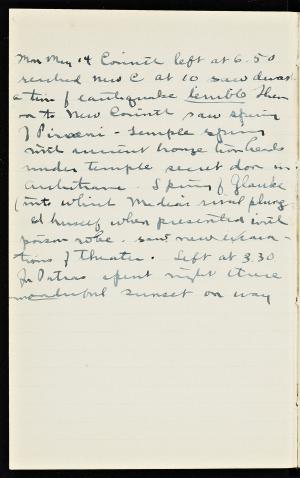 Mon May 14 Corinth left at 6.50
reached New C at 10 saw devas
tation of earthquake terrible Then
on to New Corinth saw spring
of Pireni - temple spring
with ancient bronze lion heads
under temple secret door in
architrave. Spring of Glauke
(into which Medea's rival plung
ed herself when presented with
poison robe. saw new excava
tions of theater. Left at 3.30
for Patras spent night there
wonderful sunset on way